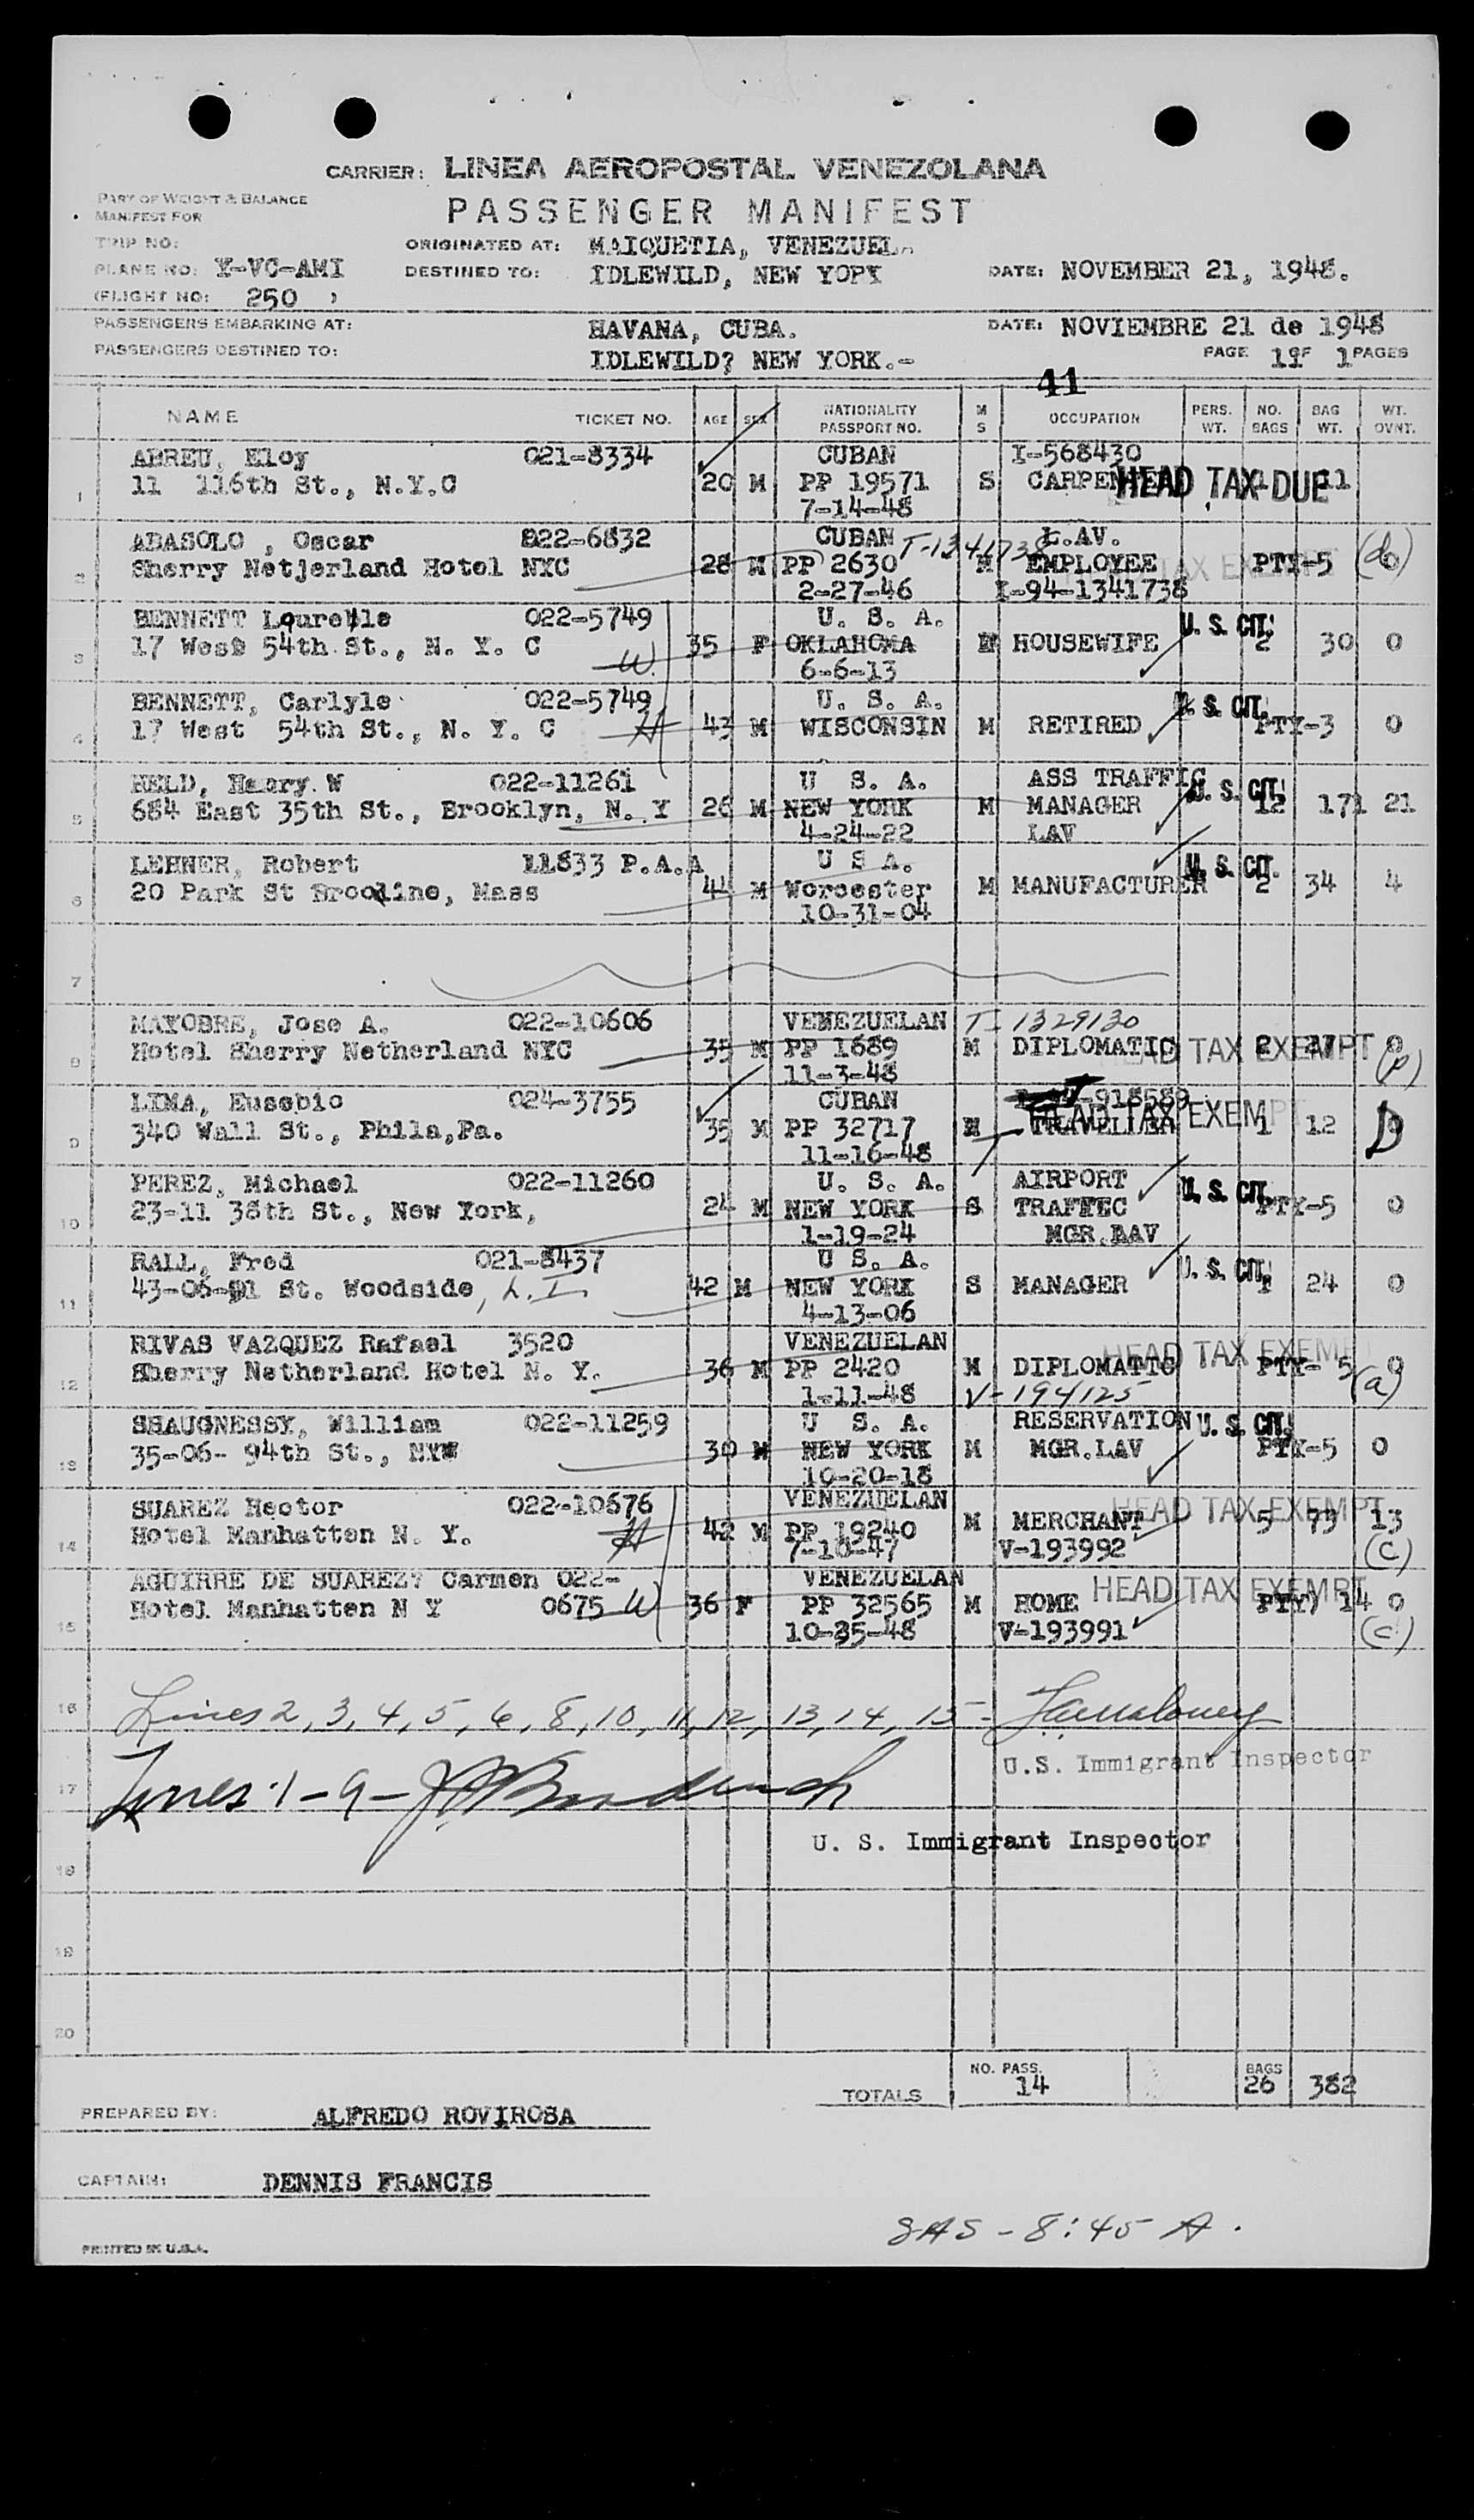 CARRIER: LINEA AEROPOSTAL VENEZOLANA
PART OF WEIGHT & BALANCE
MANIFEST FOR
PASSENGER MANIFEST
TRIP NO:
ORIGINATED AT: MAIQUETIA, VENEZUEL
PLANE NO: Y-VC-AMI
DESTINED TO: IDLEWILD, NEW YORK
DATE: NOVEMBER 21, 1948.
(FLIGHT NO: 250 )
PASSENGERS EMBARKING AT: HAVANA, CUBA. DATE: NOVIEMBRE 21 de 1948
PASSENGERS DESTINED TO: IDLEWILD? NEW YORK.-
PAGE 1 OF 1 PAGES
41
NAME TICKET NO. AGE SEX NATIONALITY PASSPORT NO. M S OCCUPATION PERS. WT. NO. BAGS BAG WT. WT. OVNT.
ABREU, Eloy 021-8334 CUBAN I-568430
1 11 116th St., N.Y.C 20 M PP 19571 S CARPENTER HEAD TAX DUE 1 11
7-14-48
ABASOLO , Oscar 022-6832 CUBAN T-1341738 L.AV.
2 Sherry Netjerland Hotel NYC 28 M PP 2630 M EMPLOYEE TAX EXEMPT PTY-5 0 (d)
2-27-46 I-94-1341738
BENNETT Lourelle 022-5749 U. S. A. U. S. CIT.
3 17 Wess 54th St., N. Y. C W. 35 F OKLAHOMA M HOUSEWIFE 2 30 0
6-6-13
BENNETT, Carlyle 022-5749 U. S. A. U. S. CIT.
4 17 West 54th St., N. Y. C H 43 M WISCONSIN M RETIRED PTY-3 0
HELD, Henry W 022-11261 U S. A. ASS TRAFFIC U. S. CIT.
5 684 East 35th St., Brooklyn, N. Y 26 M NEW YORK M MANAGER 12 171 21
4-24-22 LAV
LEHNER, Robert 11833 P.A.A U S A. U. S. CIT.
6 20 Park St Brooline, Mass 44 M Worcester M MANUFACTURER 2 34 4
10-31-04
7
MAYOBRE, Jose A. 022-10606 VENEZUELAN T-1329130
8 Hotel Sherry Netherland NYC 35 M PP 1689 M DIPLOMATIC HEAD TAX EXEMPT 2 27 0
11-3-48 (P)
LIMA, Eusebio 024-3755 CUBAN 918589
9 340 Wall St., Phila,Pa. 35 M PP 32717 M TRAVELLER HEAD TAX EXEMPT 1 12 D
11-16-48
PEREZ, Michael 022-11260 U. S. A. AIRPORT U. S. CIT.
10 23-11 38th St., New York, 24 M NEW YORK S TRAFFEC PTY-5 0
1-19-24 MGR.LAV
RALL, Fred 021-8437 U S. A. U. S. CIT.
11 43-06-91 St. Woodside, L. I. 42 M NEW YORK S MANAGER 1 24 0
4-13-06
RIVAS VAZQUEZ Rafael 3520 VENEZUELAN
12 Sherry Netherland Hotel N. Y. 36 M PP 2420 M DIPLOMATTC HEAD TAX EXEM PTY- 5 0
1-11-48 V-194125 (a)
SHAUGNESSY, William 022-11259 U S. A. RESERVATION U. S. CIT.
13 35-06- 94th St., NYW 30 M NEW YORK M MGR.LAV PTY-5 0
10-20-18
SUAREZ Hector 022-10676 VENEZUELAN
14 Hotel Manhatten N. Y. H 42 M PP 19240 M MERCHANT HEAD TAX EXEMPT 5 73 13
7-10-47 V-193992 (c)
AGUIRRE DE SUAREZ? Carmen 022- VENEZUELAN
15 Hotel Manhatten N Y 0675 W 36 F PP 32565 M HOME HEAD TAX EXEMPT PTY) 14 0
10-25-48 V-193991 (c)
16 Lines 2, 3, 4, 5, 6, 8, 10, 11, 12, 13, 14, 15-
U.S. Immigrant Inspector
17 Lines 1-9-
U. S. Immigrant Inspector
18
19
20
TOTALS NO. PASS. 14 BAGS 26 382
PREPARED BY: ALFREDO ROVIROSA
CAPTAIN: DENNIS FRANCIS
8:45 A.
PRINTED IN U.S.A.